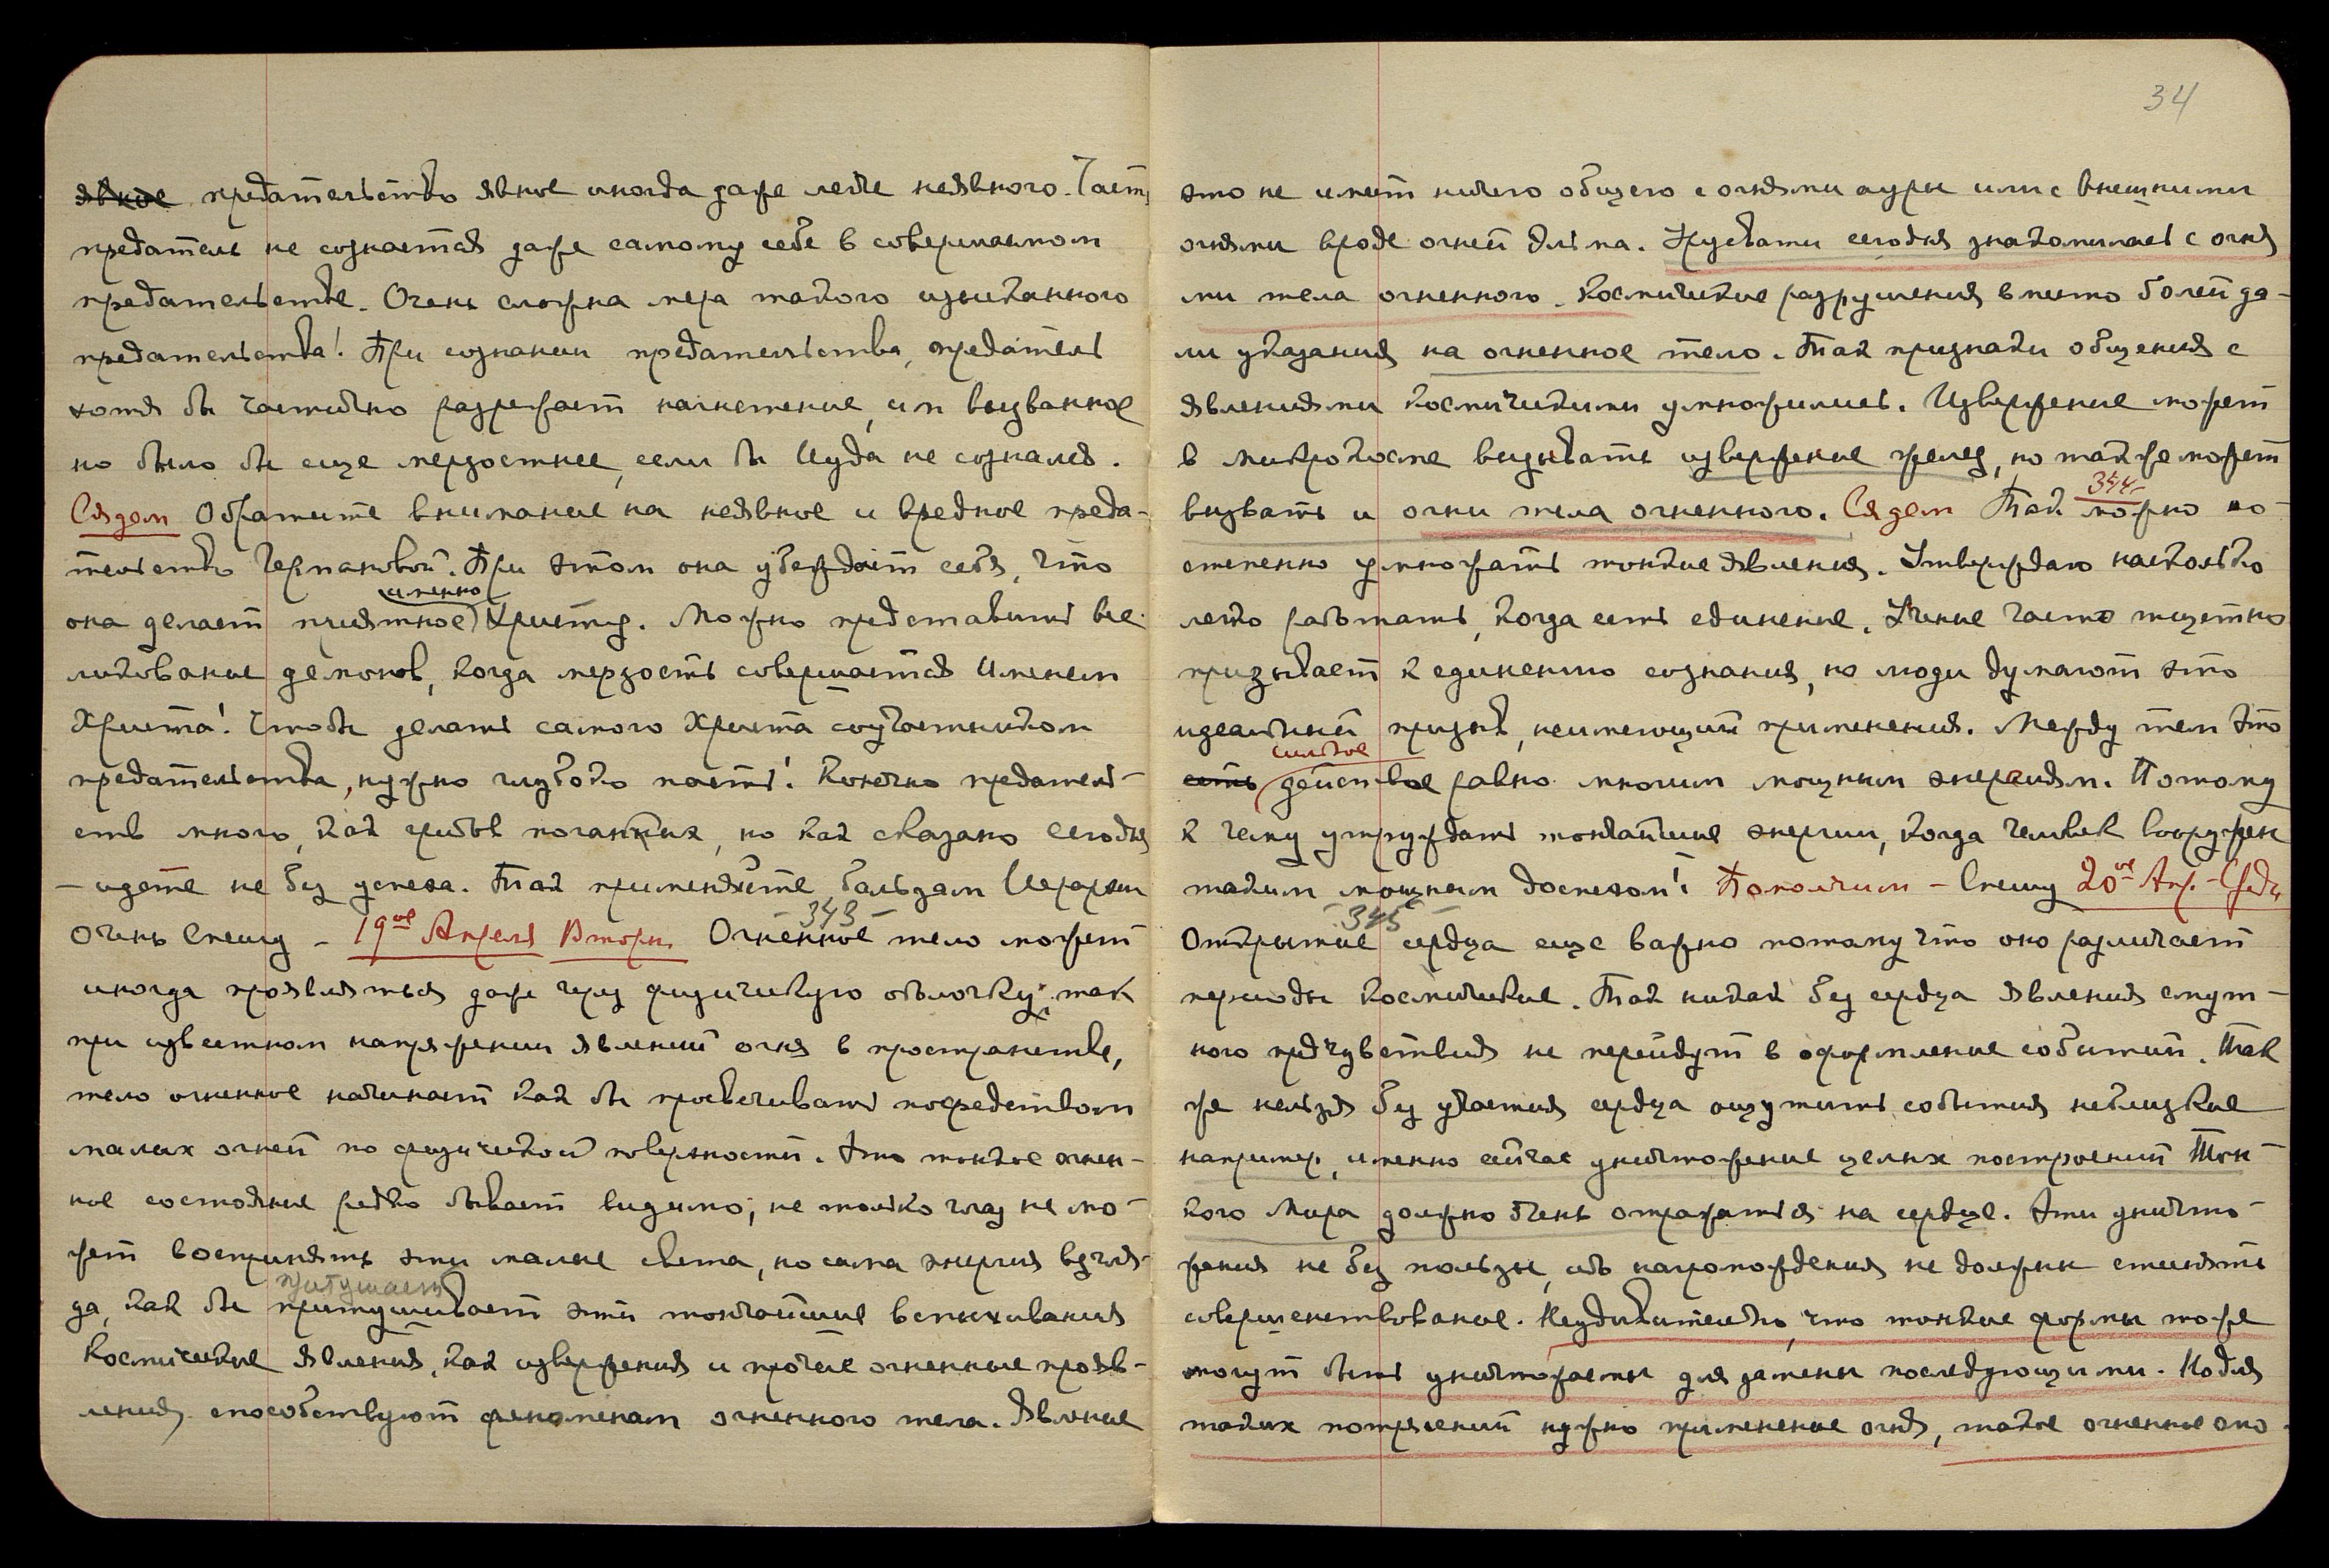 явное предательство явное иногда даже легче неявного. Часто
предатель не сознается даже самому себе в совершаемом
предательстве. Очень сложна мера такого изысканного
предательства! При сознании предательства, предатель
хотя бы частично разрежает нагнетение, им вызванное
но было бы еще мерзостнее, если бы Иуда не сознался.
Сядем Обратите внимание на неявное и вредное преда-
тельство Чермановой. При этом она убеждает себя, что
именно
она делает приятное Христу. Можно представить ве-
ликование демонов, когда мерзость совершается Именем
Христа! Чтобы делать самого Христа соучастником
предательства, нужно глубоко пасть! Конечно предатель-
ств много, как грибов поганых, но как сказано сегодня
– идете не без успеха. Так применяйте бальзам Иерархии
Очень Спешу – 19ое Апреля Вторн. Огненное тело может
343
иногда проявляться даже через физическую оболочку; так
при известном напряжении явлений огня в пространстве,
тело огненное начинает как бы просвечивать посредством
малых огней по физической поверхности. Это тонкое огнен-
ное состояние редко бывает видимо, не только глаз не мо-
жет воспринять эти малые света, но сама энергия взгля-
притушает
да, как бы притушивает эти тончайшие вспыхивания
Космические явления, как извержения и прочие огненные прояв-
ления способствуют феноменам огненного тела. Явление
34
это не имеет ничего общего с огнями ауры или с внешними
огнями вроде огней Эльма. Урусвати сегодня знакомилась с огня
ми тела огненного. Космические разрушения вместо болей да-
ли указания на огненное тело. Так признаки общения с
явлениями космическими умножились. Извержение может
в микрокосме вызывать извержение желез, но также может
344
вызвать и огни тела огненного. Сядем Так можно по-
степенно умножать тонкие явления. Утверждаю насколько
легко работать, когда есть единение. Учение часто тщетно
призывает к единению сознания, но люди думают это
идеальный призыв, неимеющий применения. Между тем это
сильное
есть действие равно многим мощным энергиям. Потому
к чему утруждать тончайшие энергии, когда человек вооружен
таким мощным доспехом! Помолчим – Спешу 20ое Апр. – Среда
345
Открытие сердца еще важно потому что оно различает
периоды космические. Так никак без сердца явления смут-
ного предчувствия не перейдут в оформление событий. Так
же нельзя без участия сердца ощутить события неблизкие
например, именно сейчас уничтожение целых построений Тон-
кого Мира должно очень отражаться на сердце. Эти уничто-
жения не без пользы, ибо нагромождения не должны стеснять
совершенствование. Неудивительно, что тонкие формы тоже
могут быть уничтожаемы для замены последующими. Но для
таких потрясений нужно применение огня, такое огненное опо-